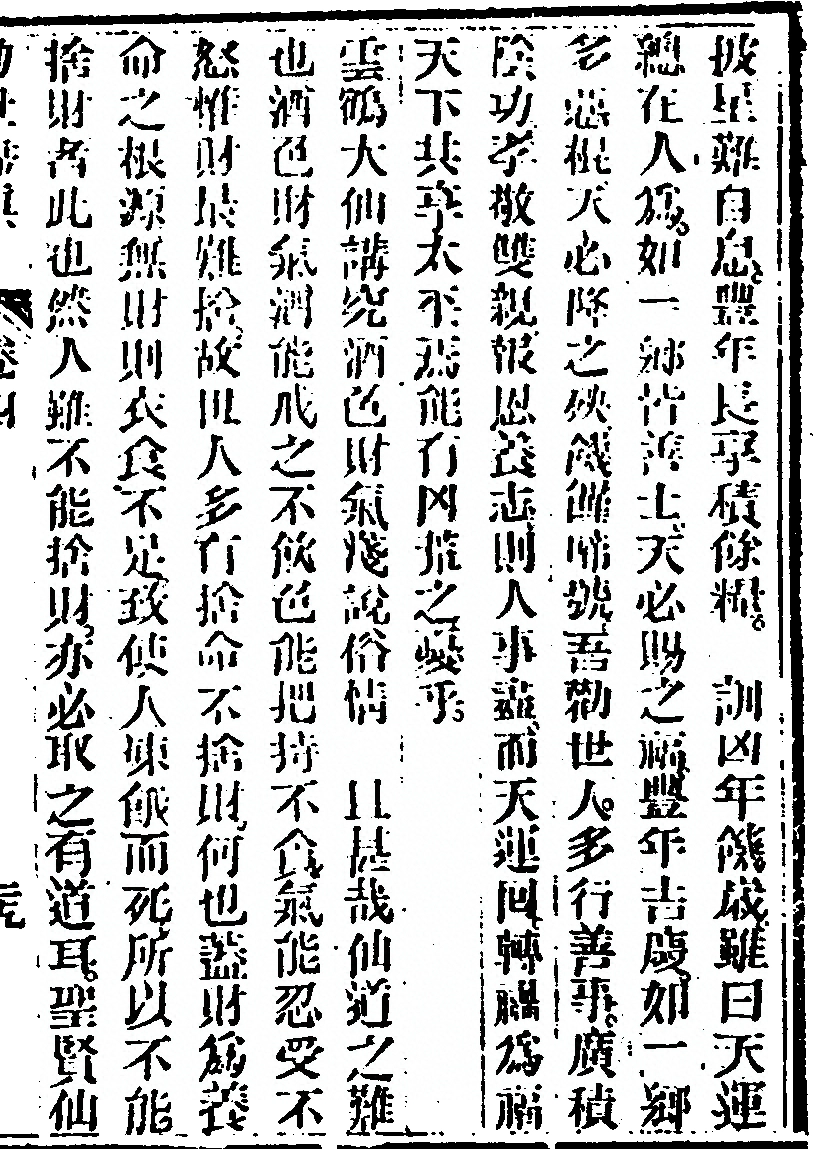 披星難自息豐年長享積餘糧。　訓凶年饑歲雖曰天運
總在人爲。如一鄉皆善士天必賜之福豐年吉慶如一鄉
多惡棍天必降之殃饑饉啼號吾勸世人。多行善事。廣積
陰功孝敬雙親報恩養志則人事盡而天運回轉禍爲福
天下共享太平焉能有凶荒之變乎。
雲鶴大仙講究酒色財氣淺說俗情　且甚哉仙道之難
也酒色財氣酒能戒之不飲色能把持不貪氣能忍受不
怒惟財最難捨。故世人多有捨命不捨財何也蓋財爲養
命之根源無財則衣食不足致使人凍餓而死所以不能
捨財者此也然人雖不能捨財。亦必取之有道耳。聖賢仙
卷四